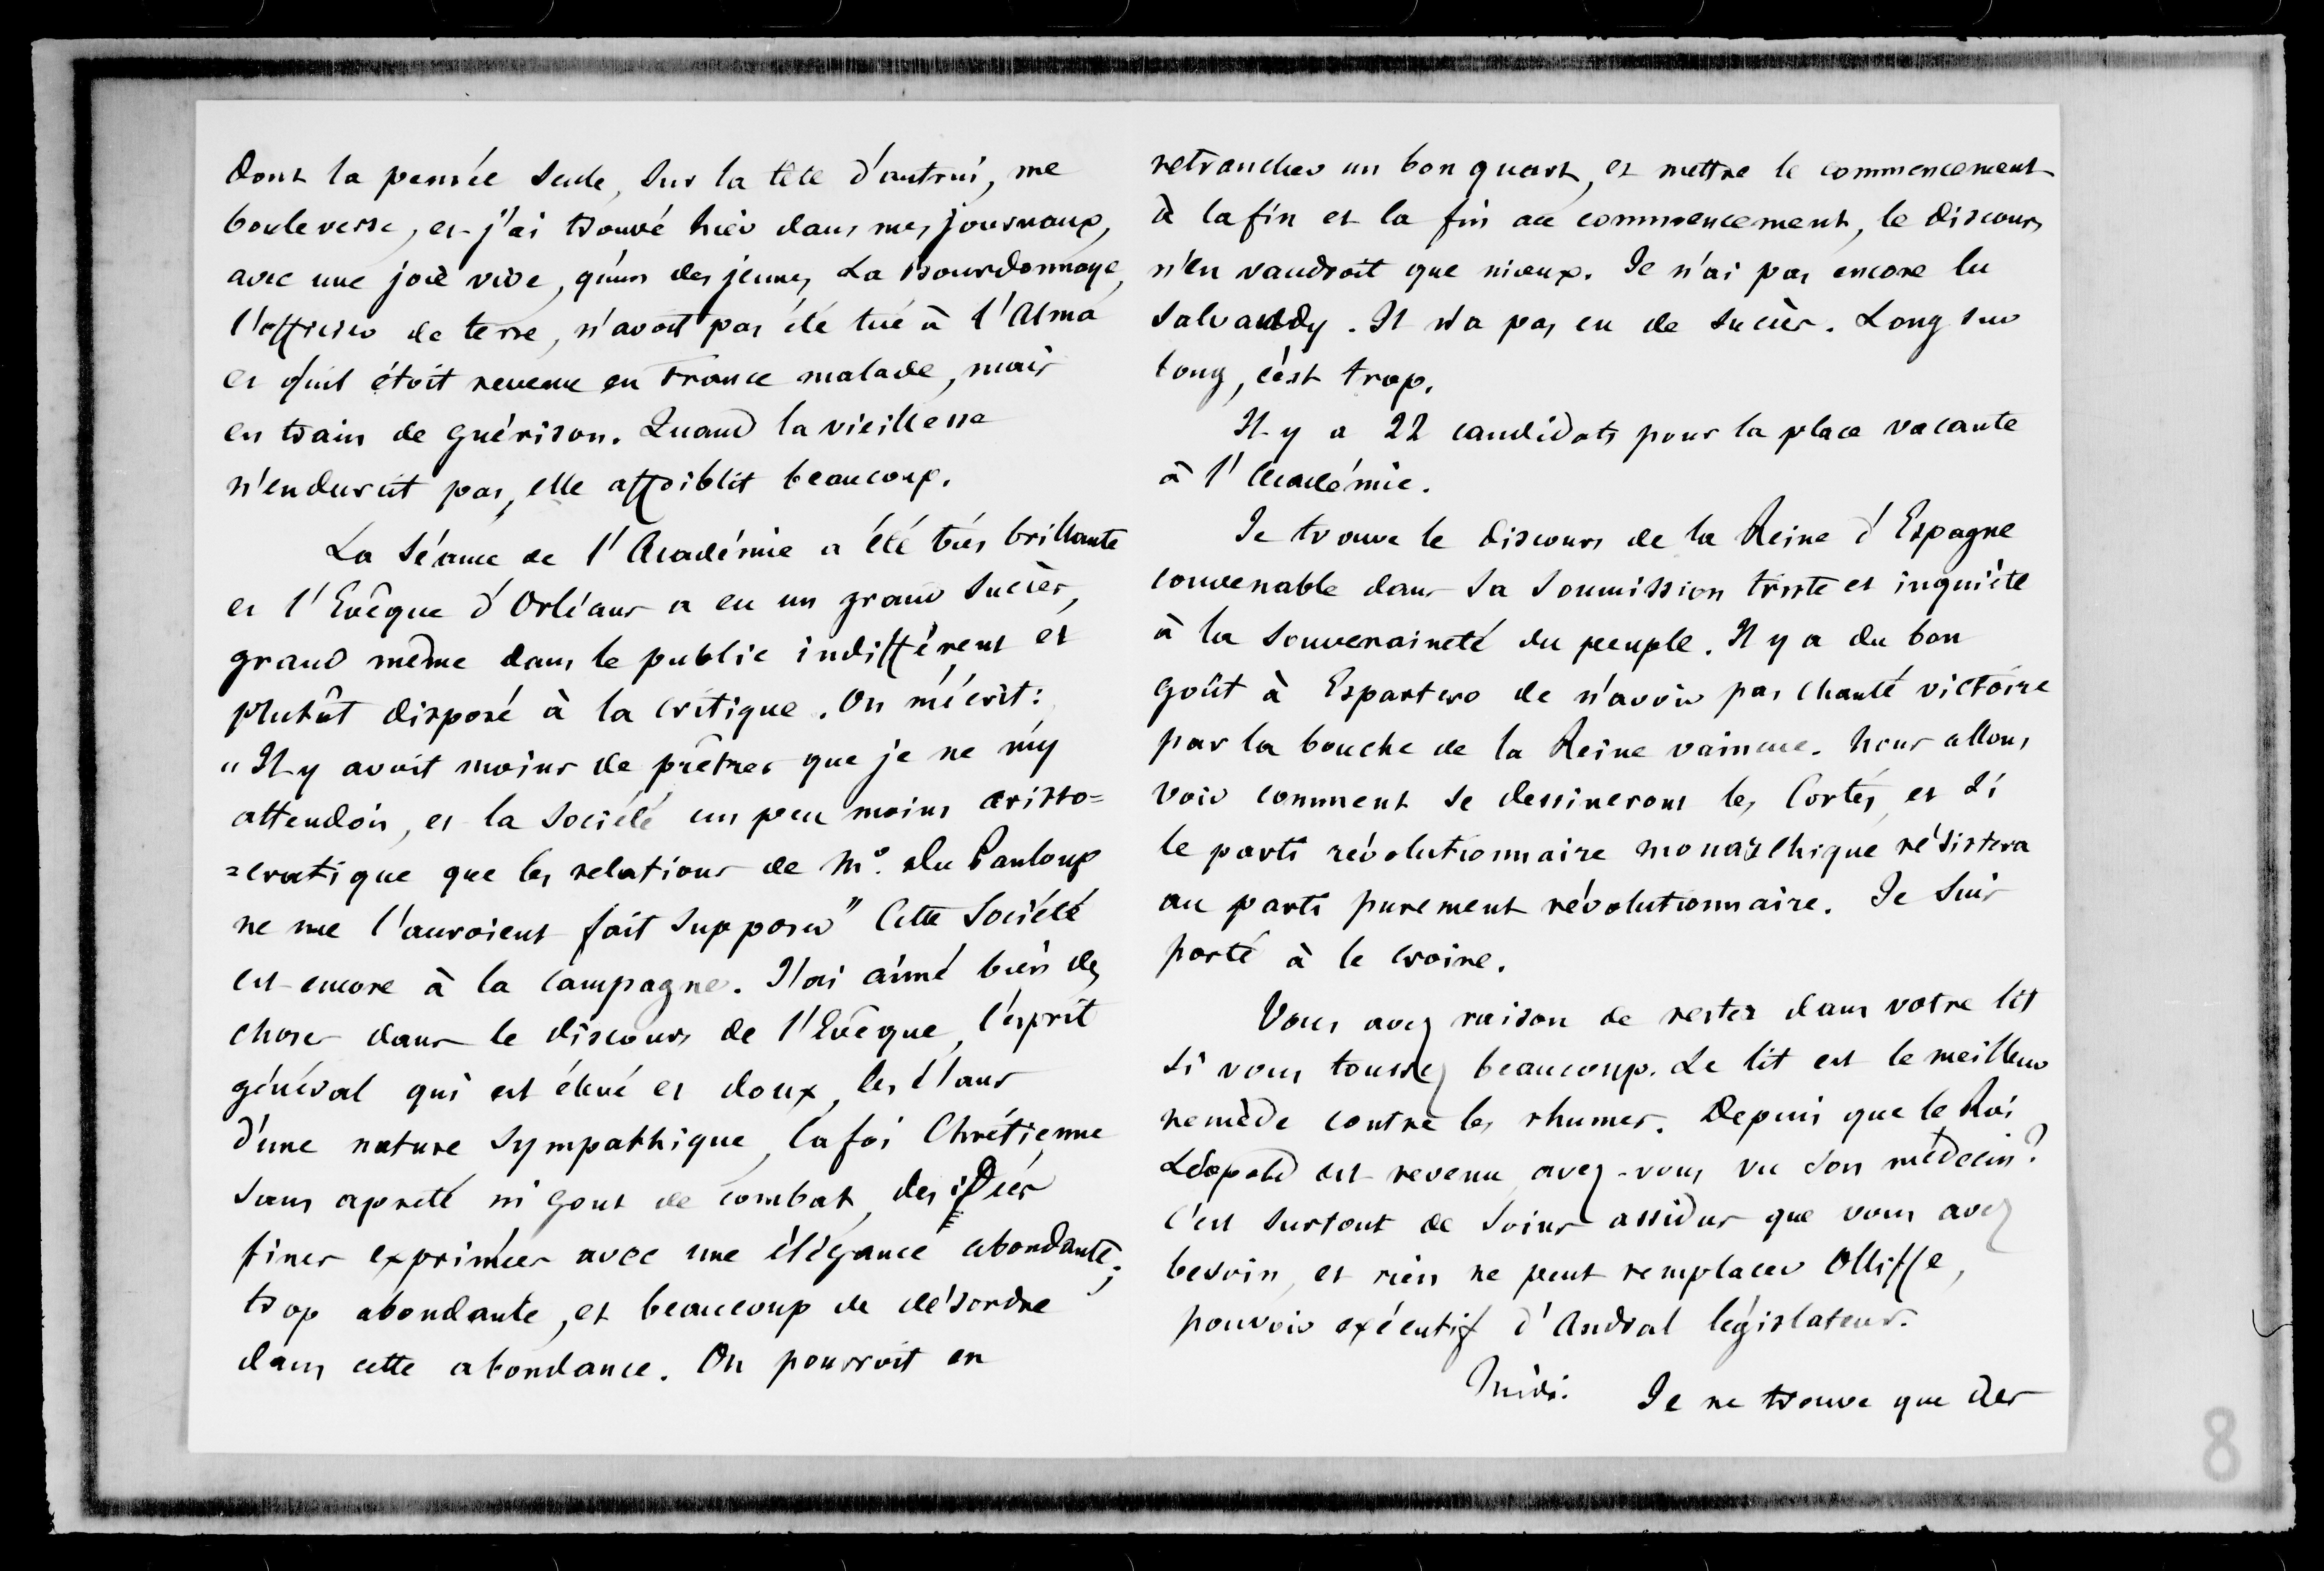 dont la pensée seule, sur la tête d'autrui, me
bouleverse, et j'ai trouvé hier dans mes journaux,
avec une joie vive, qu'un des jeunes La Bourdonnaye,
l'officier de terre, n'avoit pas été tué à l'Alma
et qu'il étoit revenu en France malade, mais
en train de guérison. Quand la vieillesse
n'endurcit pas, elle affoiblit beaucoup.
La Séance de l'Académie a été très brillante
et l'Evêque d'Orléans a eu un grand succès,
grand même dans le public indifférent et
plutôt disposé à la critique. On m'écrit:
"Il y avoit moins de prêtres que je ne m'y
attendois, et la société un peu moins aristo=
=cratique que les relations de Mr. Du Panloup
ne me l'auroient fait supposer" Cette Société
est encore à la campagne. J'ai aimé bien des
choses dans le discours de l'Evêque, l'esprit
général qui est élevé et doux, les élans
d'une nature sympathique, la foi Chrétienne
sans apreté ni gout de combat, des idées
fines exprimées avec une élégance abondante;
trop abondante, et beaucoup de désordre
dans cette abondance. On pourroit en
retrancher un bon quart, et mettre le commencement
à la fin et la fin au commencement, le discours
n'en vaudroit que mieux. Je n'ai pas encore lu
Salvandy. Il n'a pas eu de succès. Long sur
long, c'est trop.
Il y a 22 candidats pour la place vacante
à l'Académie.
Je trouve le discours de la Reine d'Espagne
convenable dans sa soumission triste et inquiète
à la souveraineté du peuple. Il y a du bon
goût à Espartero de n'avoir pas chanté victoire
par la bouche de la Reine vaincue. Nous allons
voir comment se dessineront les Cortès, et si
le parti révolutionnaire monarchique résistera
au parti purement révolutionnaire. Je suis
porté à le croire.
Vous avez raison de rester dans votre lit
si vous toussez beaucoup. Le lit est le meilleur
remède contre les rhumes. Depuis que le Roi
Léopold est revenu, avez-vous vu son médecin?
c'est surtout de soins assidus que vous avez
besoin, et rien ne peut remplacer Olliffe,
pouvoir exécutif d'Andral législateur.
Midi. Je ne trouve que des
8